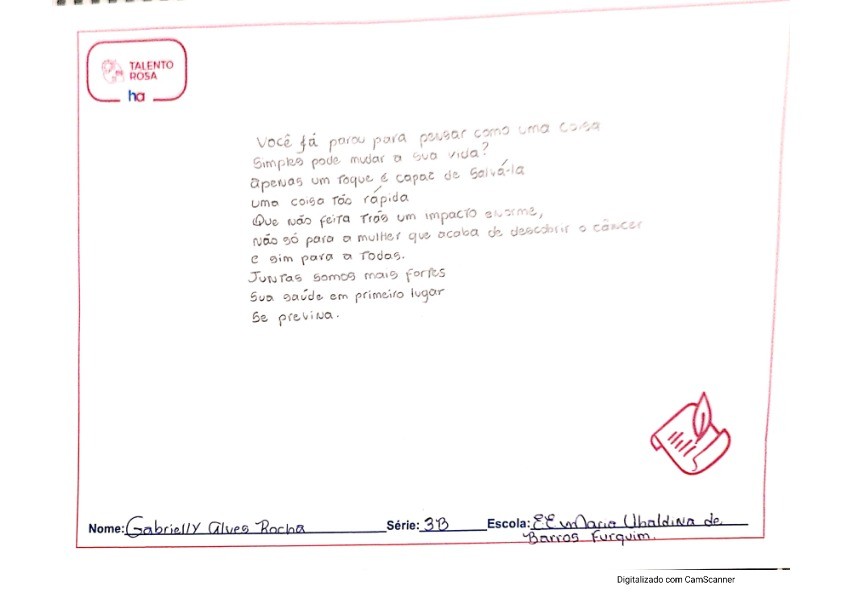 TALENTO
ROSA
ha
Você já parou para pensar como uma coisa
Simples pode mudar a sua vida?
Apenas um toque é capaz de salvá-la
uma coisa tão rápida
Que não feita trás um impacto enorme,
não só para a mulher que acaba de descobrir o câncer
e sim para a todas.
Juntas somos mais fortes
Sua saúde em primeiro lugar
Se previna.
Nome: Gabrielly Alves Rocha Série: 3B Escola: E.E Maria Ubaldina de
Barros Furquim.
Digitalizado com CamScanner